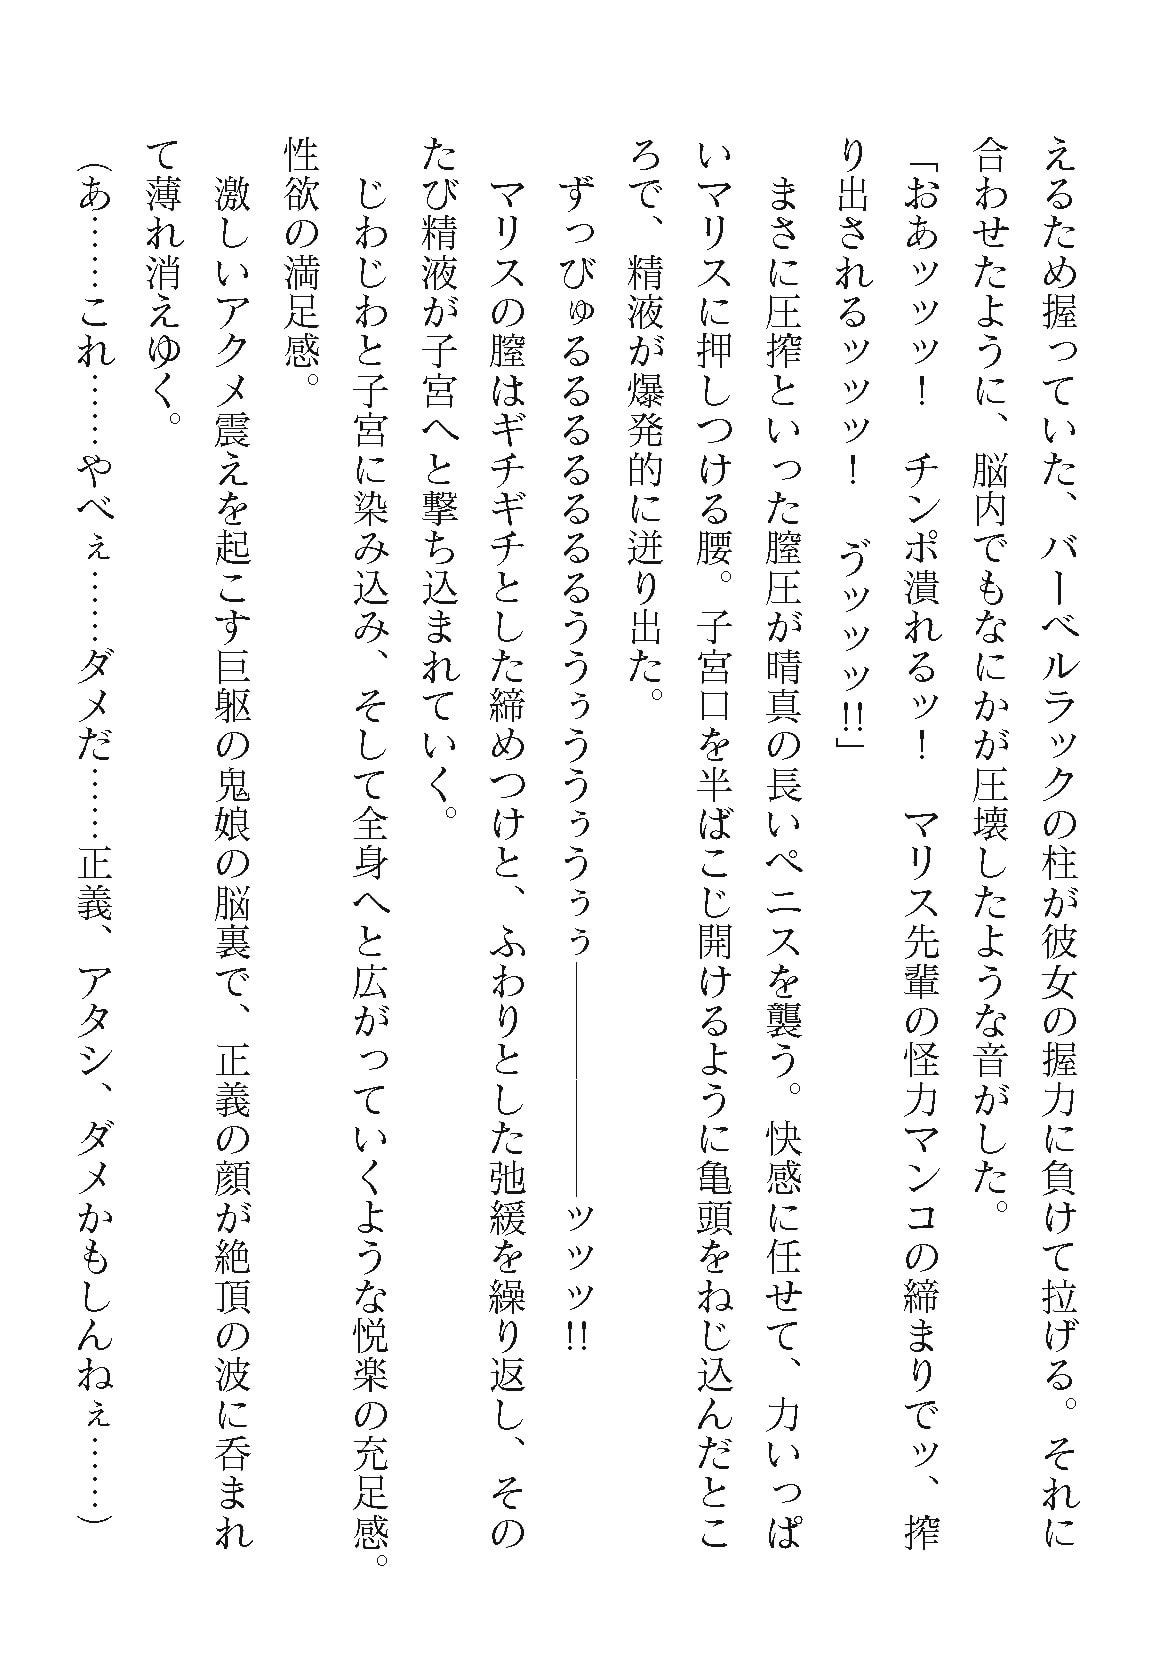 えるため握っていた、バーベルラックの柱が彼女の握力に負けて拉げる。それに
合わせたように、脳内でもなにかが圧壊したような音がした。
「おあッッッ！　チンポ潰れるッ！　マリス先輩の怪力マンコの締まりでッ、搾
り出されるッッッ！　ゔッッッ!!」
　まさに圧搾といった膣圧が晴真の長いペニスを襲う。快感に任せて、力いっぱ
いマリスに押しつける腰。子宮口を半ばこじ開けるように亀頭をねじ込んだとこ
ろで、精液が爆発的に迸り出た。
　ずっびゅるるるるるるううぅううぅうぅぅ――――――ッッッ!!
　マリスの膣はギチギチとした締めつけと、ふわりとした弛緩を繰り返し、その
たび精液が子宮へと撃ち込まれていく。
　じわじわと子宮に染み込み、そして全身へと広がっていくような悦楽の充足感。
性欲の満足感。
　激しいアクメ震えを起こす巨躯の鬼娘の脳裏で、正義の顔が絶頂の波に呑まれ
て薄れ消えゆく。
（あ……これ……やべぇ……ダメだ……正義、アタシ、ダメかもしんねぇ……）